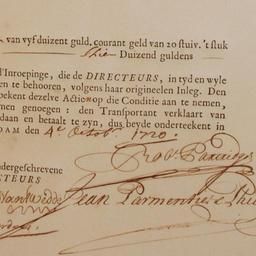 van vyf duizent guld. courant geld van 20 stuiv. 't stuk
Duizend guldens
d'Inroepinge, die de DIRECTEURS, in tyd en wyle
en te behooren, volgens haar origineelen Inleg. Den
bekent dezelve Action op die Conditie aan te nemen,
men genoegen: den Transportant verklaart van
daan en betaalt te zyn, dus beyde onderteekent in
DAM den 4e Octob. 1720.
dergeschrevene
CTEURS
Jean Parmentier